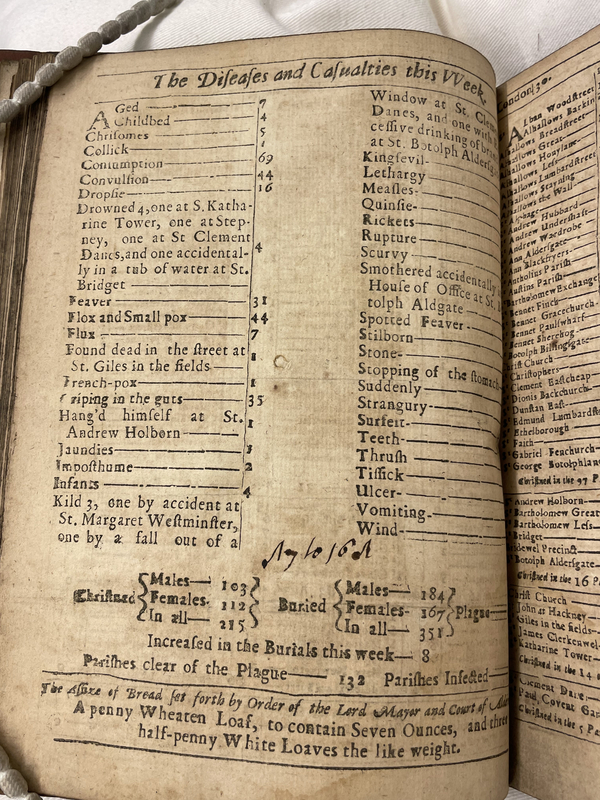 The Diſeaſes and Caſualties this VVeek.
Aged 7
Childbed 4
Chriſomes 5
Collick 1
Conſumption 69
Convulſion 44
Dropſie 16
Drowned 4, one at S. Katha-
rine Tower, one at Step-
ney, one at St Clement
Danes, and one accidental-
ly in a tub of water at St.
Bridget 4
Feaver 31
Flox and Small pox 44
Flux 7
Found dead in the ſtreet at
St. Giles in the fields 1
French-pox 1
Griping in the guts 35
Hang'd himſelf at St.
Andrew Holborn 1
Jaundies
Impoſthume 2
Infants 4
Kild 3, one by accident at
St. Margaret Weſtminſter,
one by a fall out of a
Window at St. Cleme
Danes, and one with
ceſſive drinking of bran
at St. Botolph Alderſg
Kingſevil
Lethargy
Meaſles
Quinſie
Rickets
Rupture
Scurvy
Smothered accidentally
Houſe of Office at St.
tolph Aldgate
Spotted Feaver
Stilborn
Stone
Stopping of the ſtomach
Suddenly
Strangury
Surfeit
Teeth
Thruſh
Tiſſick
Ulcer
Vomiting
Wind
Chriſtned Males 103 Females 112 In all 215 Buried Males 184 Females 167 In all 351 Plague
Increaſed in the Burials this week 8
Pariſhes clear of the Plague 132 Pariſhes Infected
The Aſſize of Bread ſet forth by Order of the Lord Mayor and Court of
A penny Wheaten Loaf, to contain Seven Ounces, and three
half-penny White Loaves the like weight.
London 30.
Alban Woodſtreet
Alhallows Barkin
Alhallows Breadſtreet
Alhallows Great
Alhallows Honylane
Alhallows Leſs
Alhallows Lumbardſtreet
Alhallows Stayning
Alhallows the Wall
Alphage
Andrew Hubbard
Andrew Underſhaft
Andrew Wardrobe
Ann Alderſgate
Ann Blackfryers
Antholins Pariſh
Auſtins Pariſh
Bartholomew Exchange
Bennet Finch
Bennet Gracechurch
Bennet Paulſwharf
Bennet Sherehog
Botolph Billingſgate
Chriſt Church
Chriſtophers
Clement Eaſtcheap
Dionis Backchurch
Dunſtan Eaſt
Edmund Lumbardſt
Ethelborough
Faith
Gabriel Fenchurch
George Botolphlane
Chriſtned in the 97 P
Andrew Holborn
Bartholomew Great
Bartholomew Leſs
Bridget
Bridewel Precinct
Botolph Alderſgate
Chriſtned in the 16 P
Chriſt Church
John at Hackney
Giles in the fields
James Clerkenwel
Katharine Tower
Chriſtned in the 14
Clement Dane
Paul Covent Gar
Chriſtned in the 5 Pa